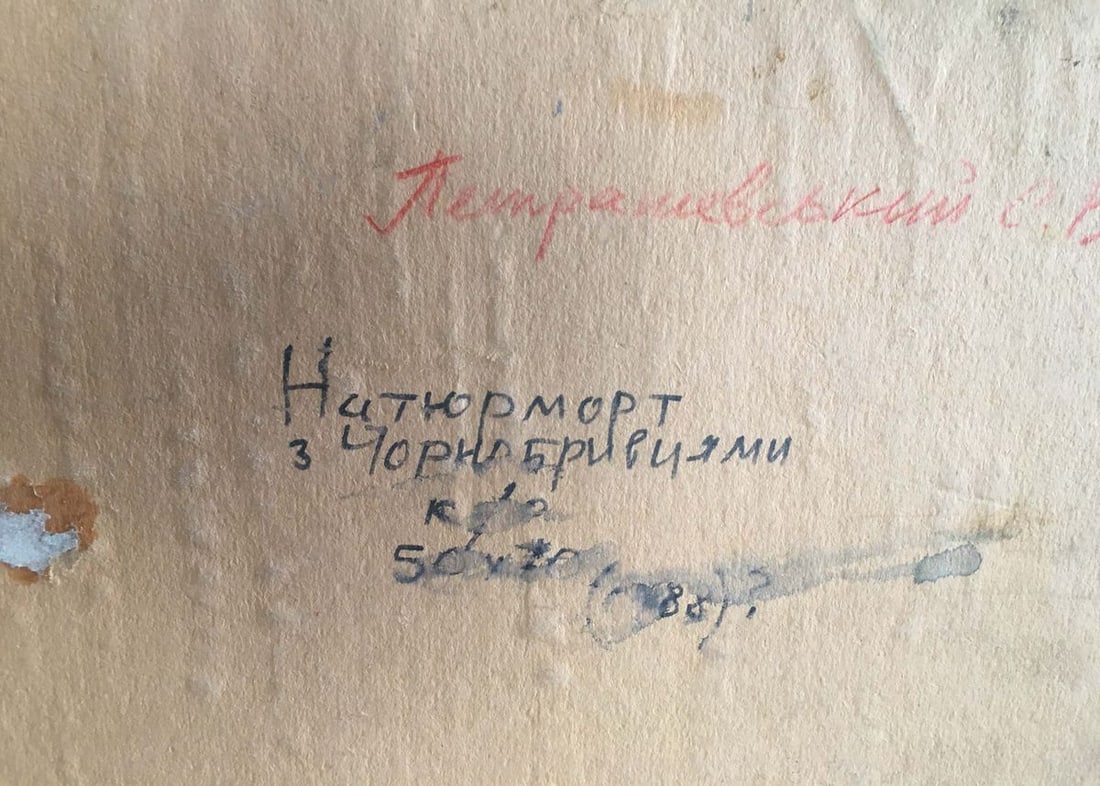 Петрашевський Є. В
Натюрморт
з Чорнобривцями
к/о
50х70,
88)?